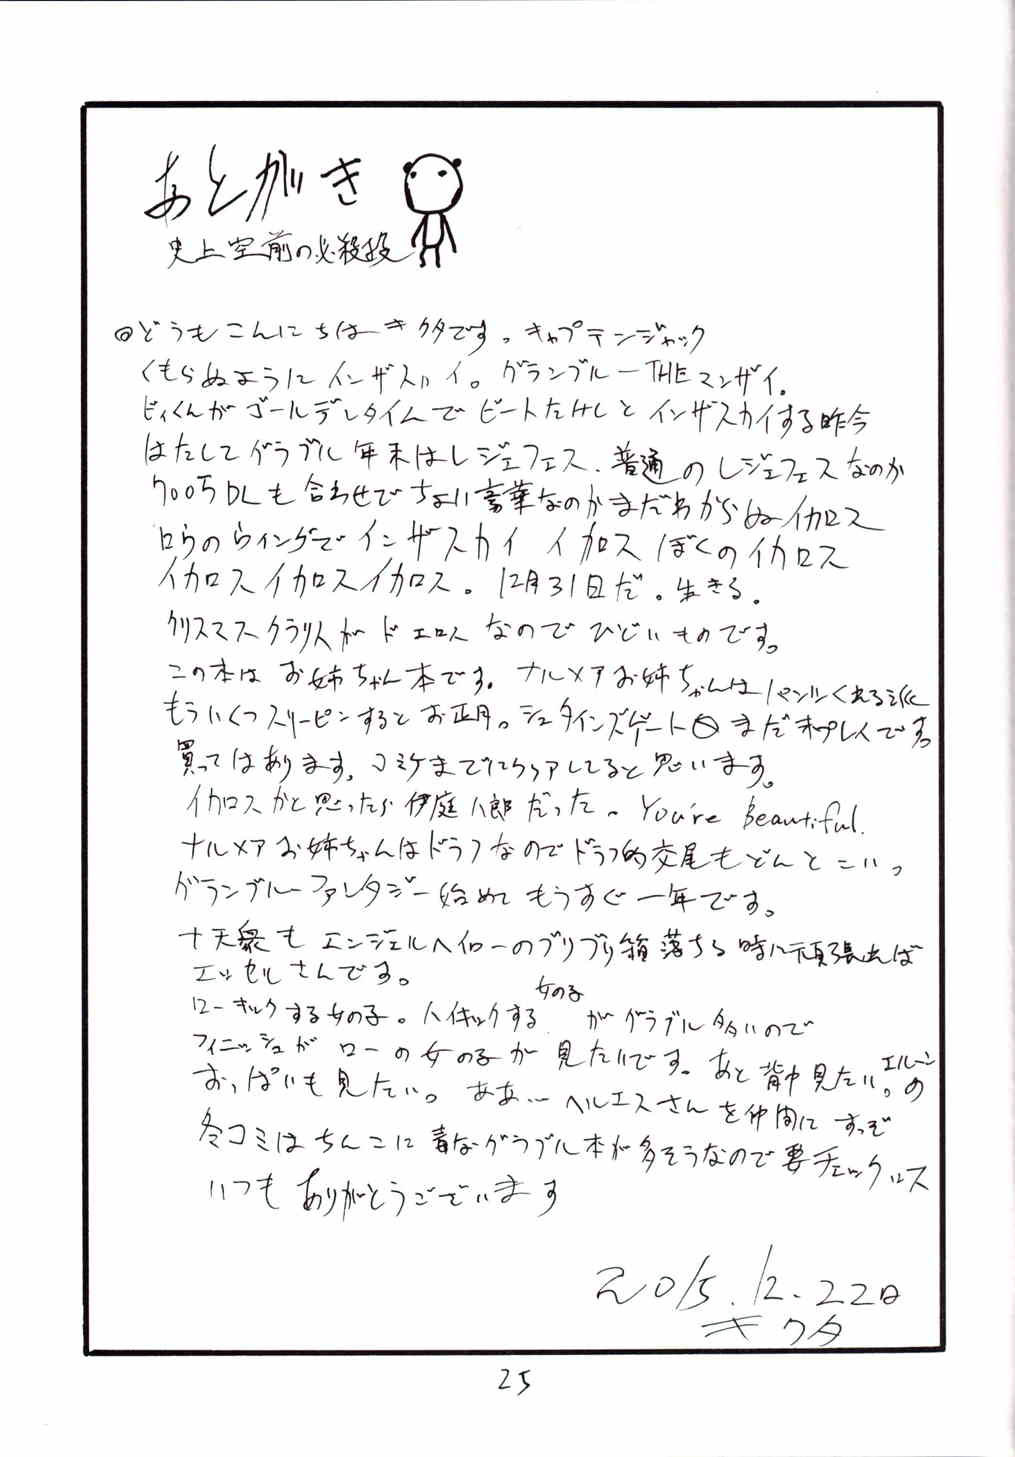 あとがき
史上空前の必殺技
◎どうもこんにちはーキクタです。キャプテンジャック
くもらぬようにインザスカイ。グランブルーTHEマンザイ。
ビィくんがゴールデンタイムでビートたけしとインザスカイする昨今
はたしてグラブル年末はレジェフェス、普通のレジェフェスなのか
700万DLも合わせでちょい豪華なのかまだわからぬイカロス
ロウのウィングでインザスカイ イカロス ぼくのイカロス
イカロスイカロスイカロス。12月31日だ。生きる。
クリスマスクラリスがドエロスなのでひどいものです。
この本はお姉ちゃん本です。ナルメアお姉ちゃんはパンツくれる派
もういくつスリーピンするとお正月。シュタインズゲート0まだ未プレイです。
買ってはあります、コミケまでにクリアしてると思います。
イカロスかと思ったら伊庭八郎だった〜You're Beautiful.
ナルメアお姉ちゃんはドラフなのでドラフ的交尾もどんとこいっ
グランブルーファンタジー始めてもうすぐ一年です。
十天衆もエンジェルヘイローのブリブリ箱落ちる時に頑張れば
エッセルさんです。
ローキックする女の子。ハイキックする女の子がグラブル多いので
フィニッシュがローの女の子が見たいです。あと背中見たい。エルーンの
おっぱいも見たい。ああ…ヘルエスさんを仲間にすっぞ
冬コミはちんこに毒なグラブル本が多そうなので要チェックロス
いつもありがとうございます
2015.12.22日
キクタ
25